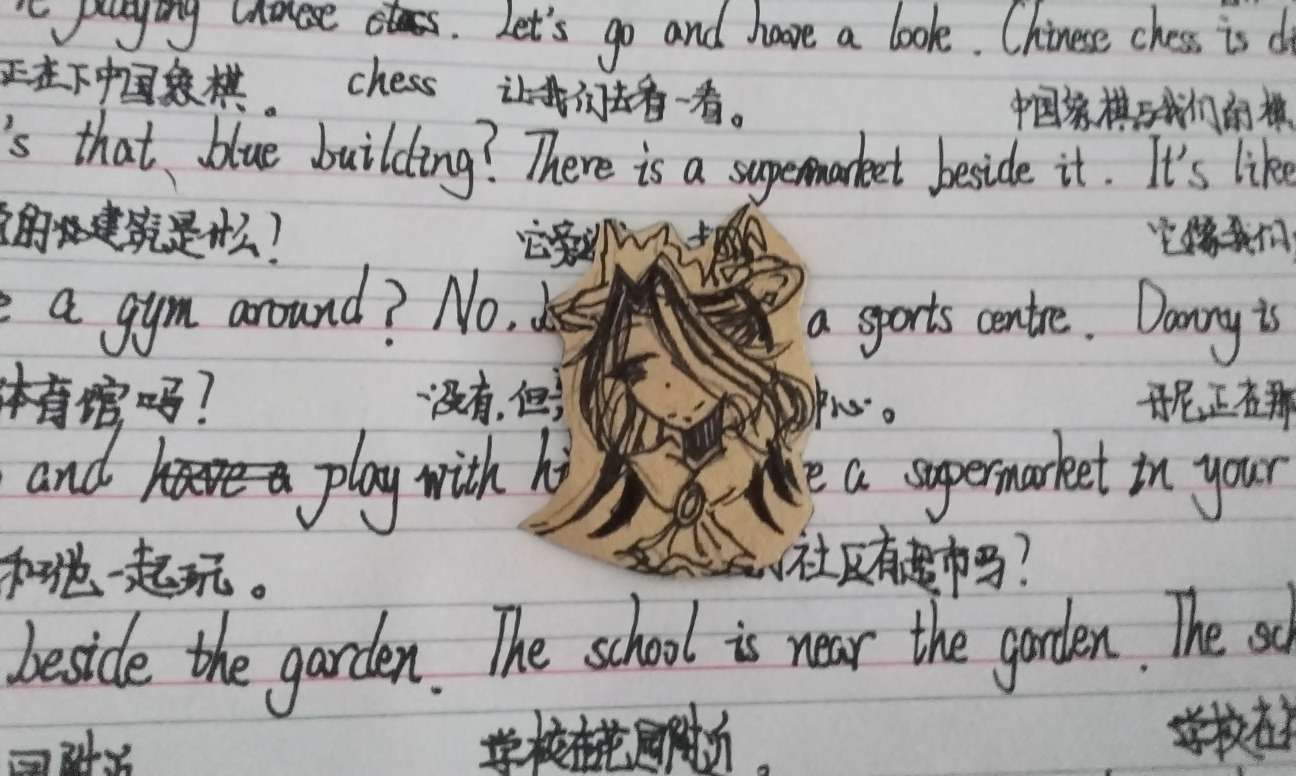 playing Chinese . Let's go and have a look . Chinese chess is
正在下中国象棋。 chess 让我们去看一看。 中国象棋与我们的棋
's that blue building? There is a supermarket beside it . It's like
的 建筑是什么? 它 它像我们
a gym around? No. a sports centre . Danny is
体育馆吗? 没有,但 中心。 丹尼正在那
and have a play with hi e a supermarket in your
和他一起玩。 社区有超市吗?
beside the garden. The school is near the garden . The sch
园附近 学校在花园附近。 学校在